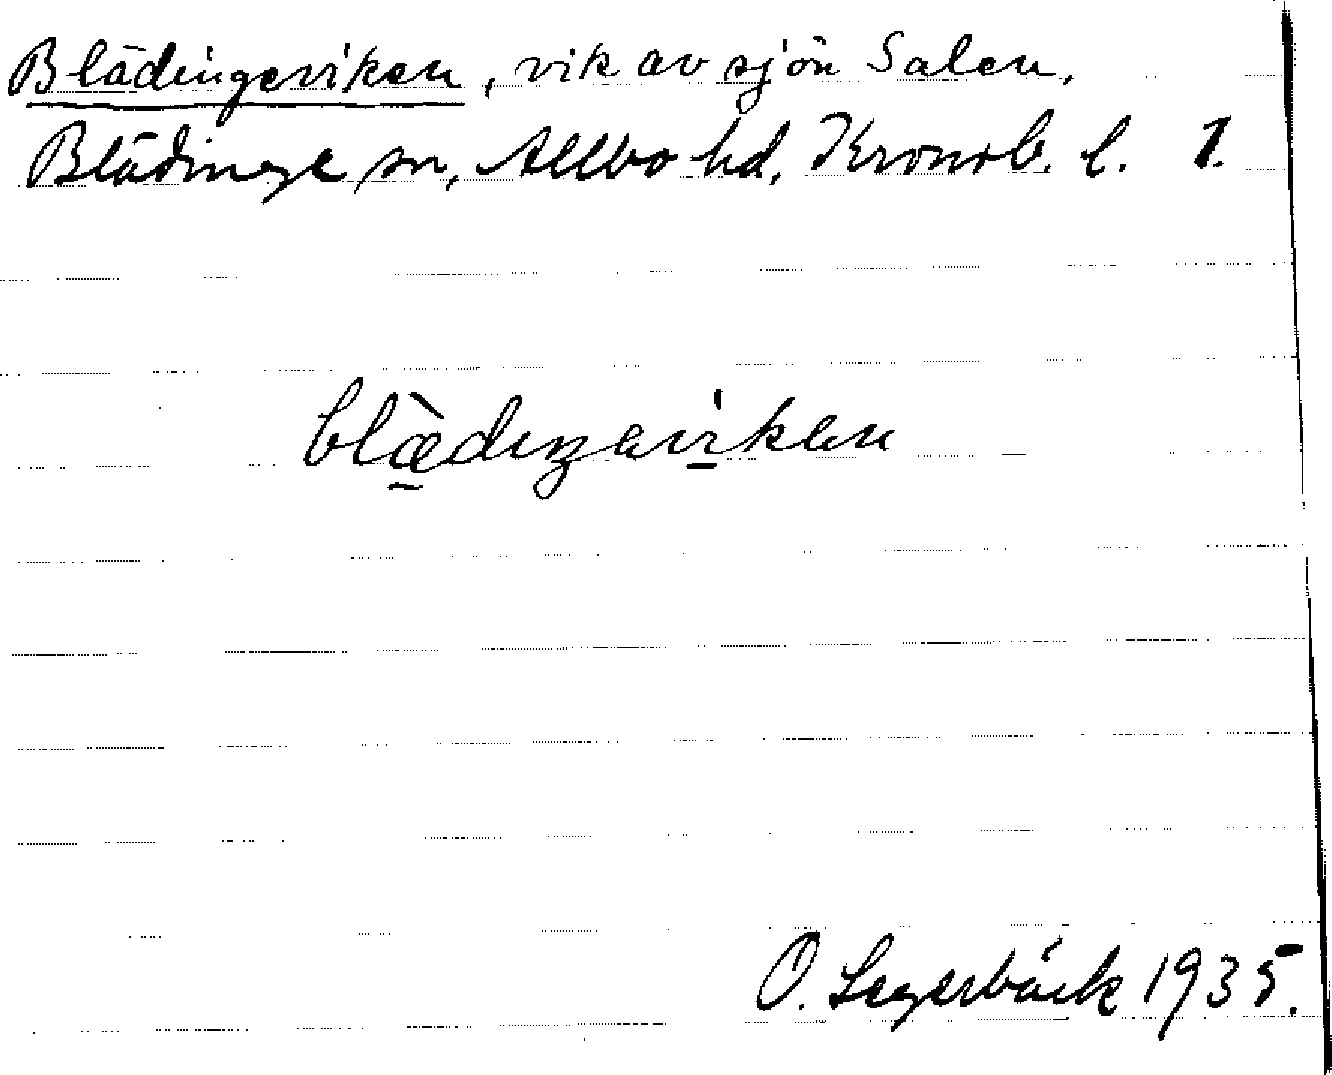 Blädingeviken, vik av sjön Salen,
Blädinge sn, Allbo hd, Kronob. l. 1.
blæ̀diŋeviken
O. Segerbäck 1935.